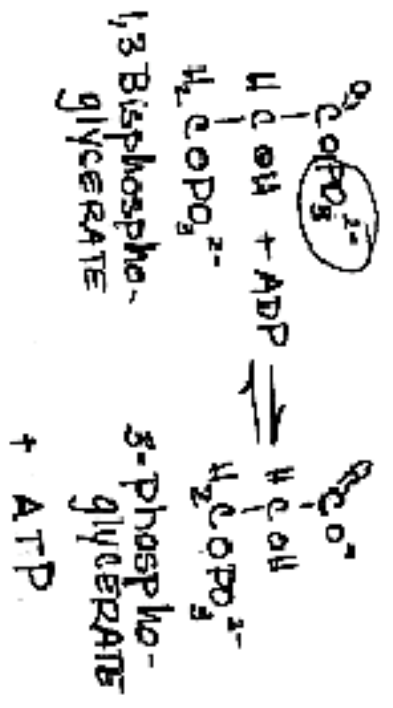 O
C OPO3 2-
H C OH + ADP ⇌
H2 C OPO3 2-
1,3 Bisphospho-
glyCERATE
O
C O-
H C OH
H2 C OPO3 2-
3-phospho-
glyCERATE
+ ATP